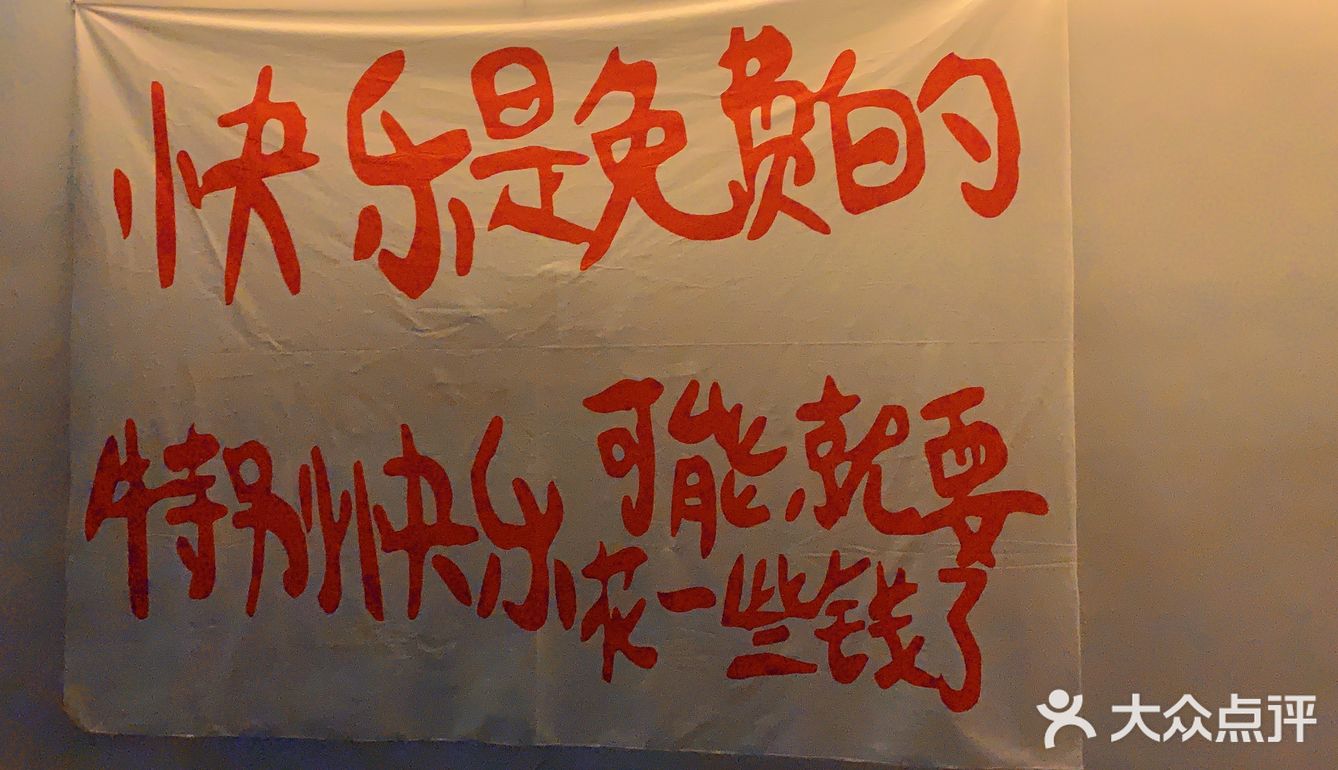 快乐是免费的
特别快乐可能就要
花一些钱了
大众点评